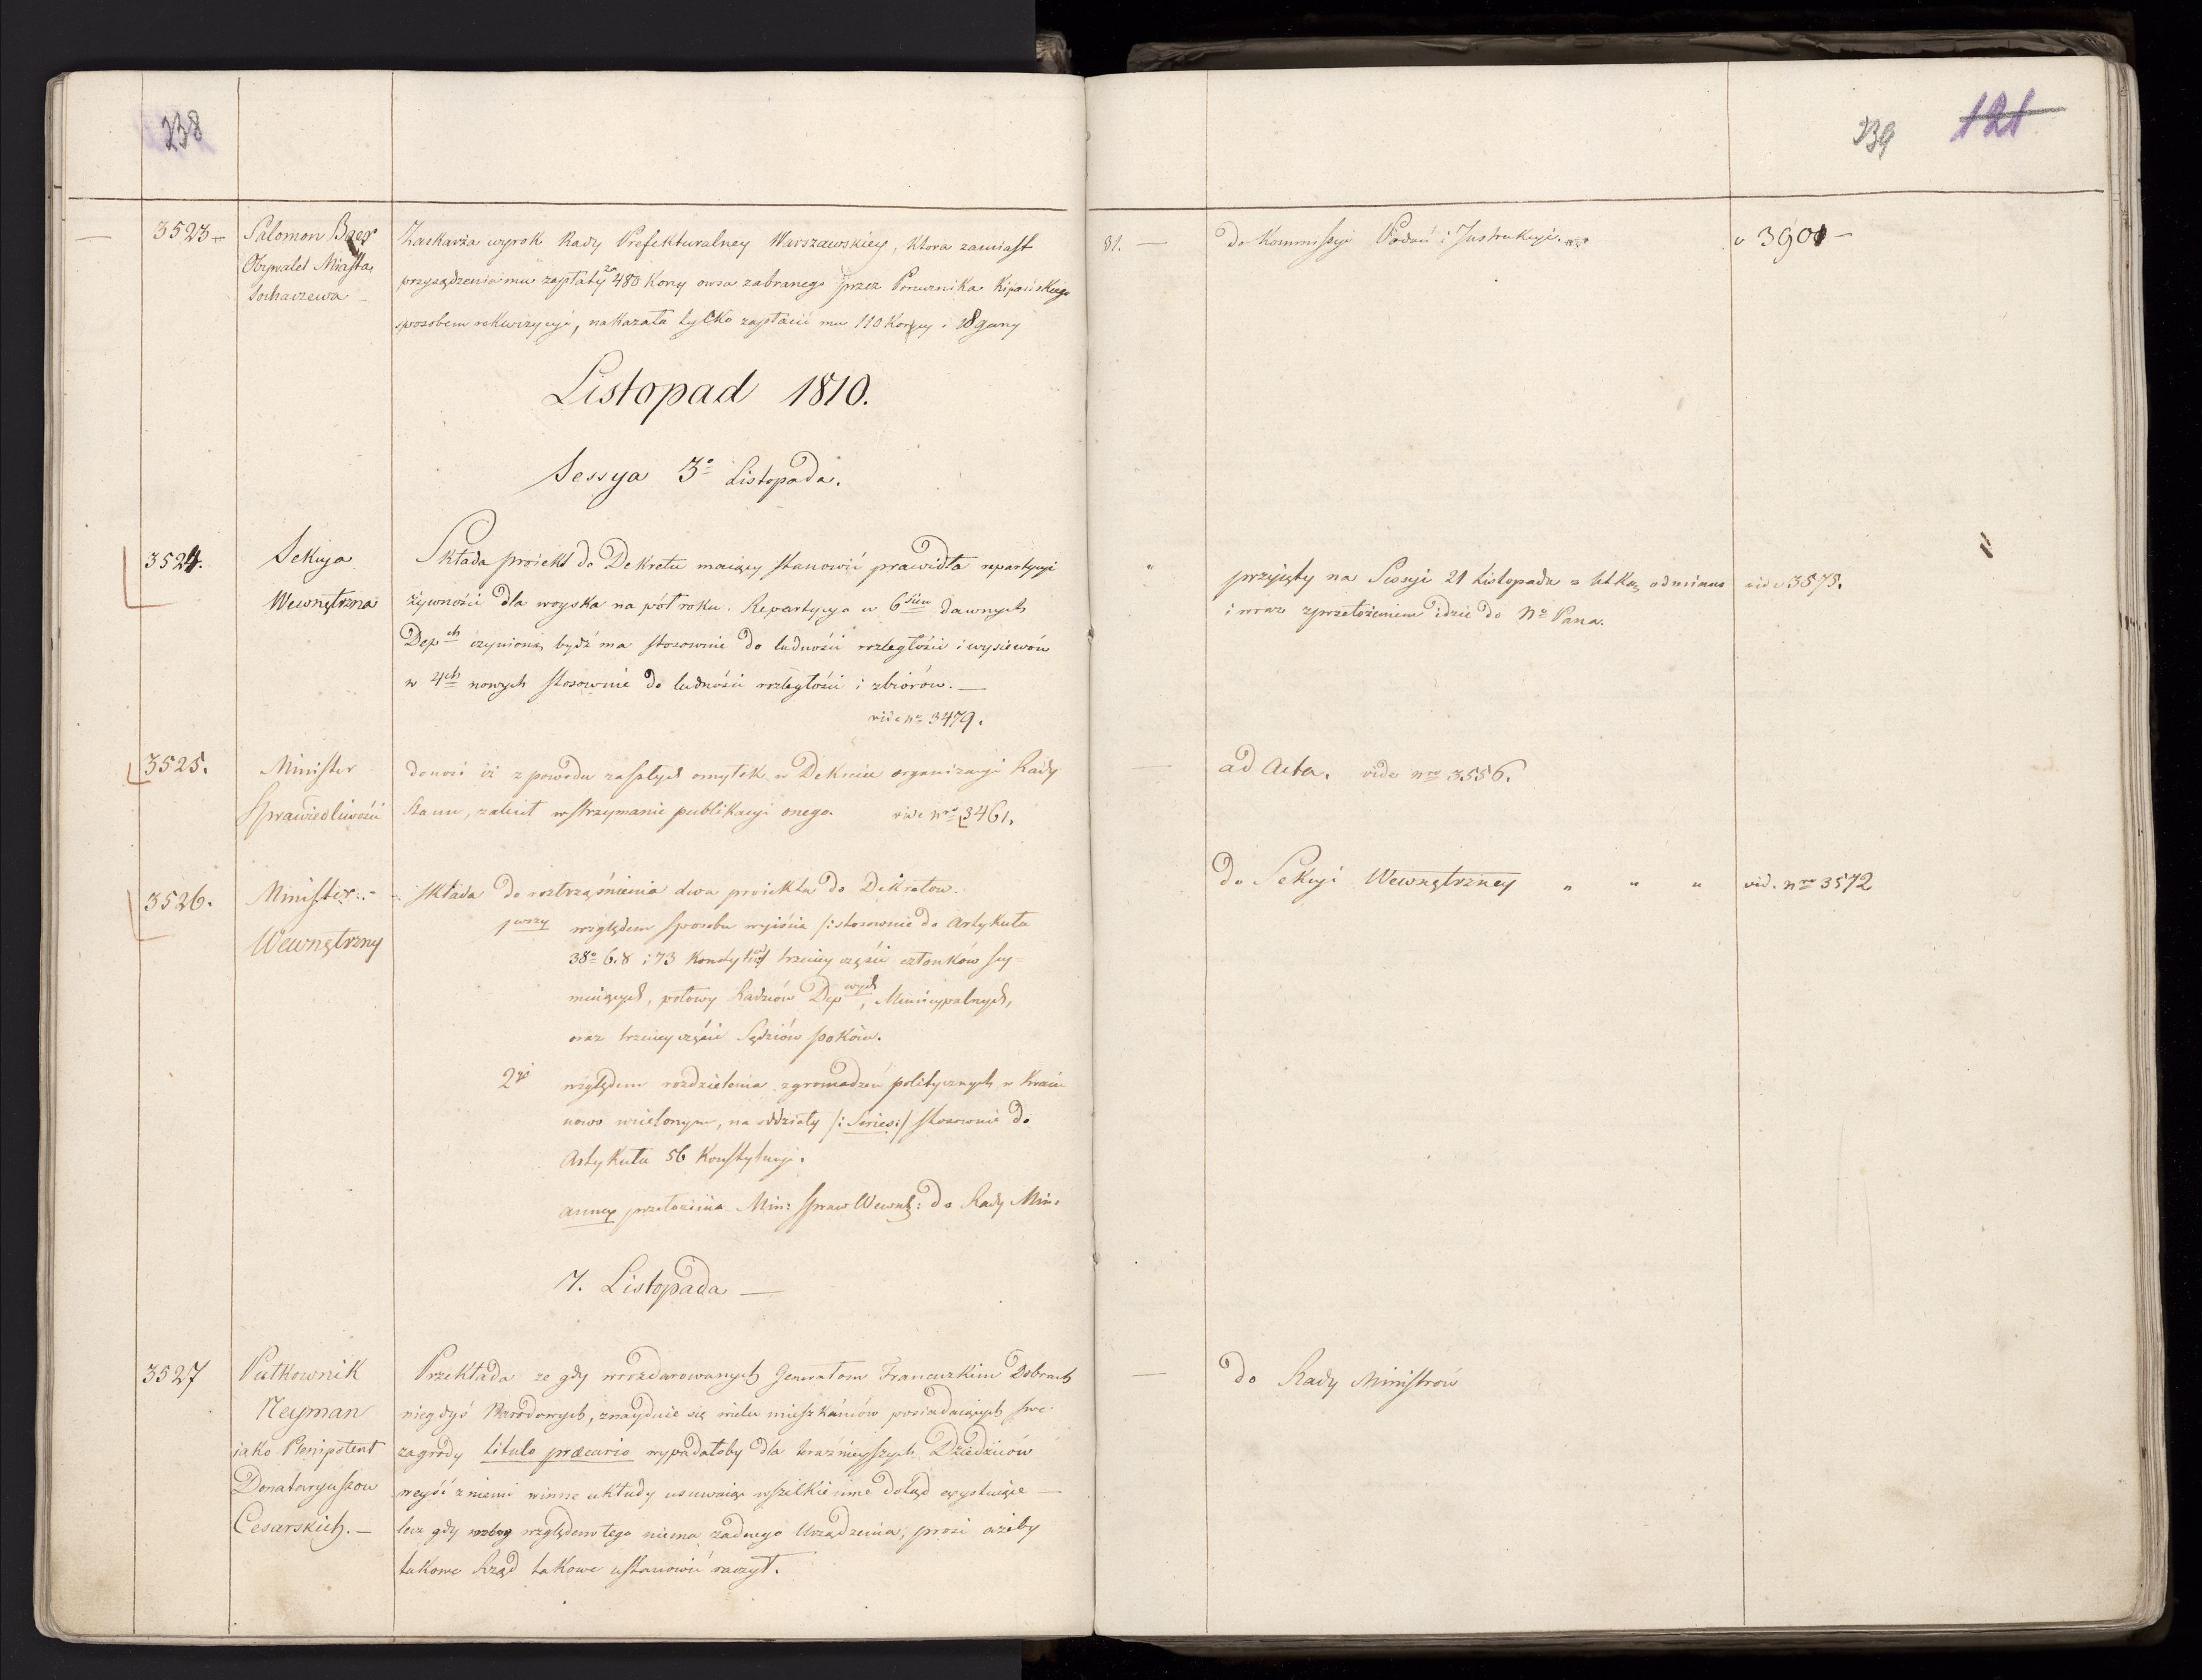 238
3523 — Salomon Baer Zaskarża wyrok Rady Prefekturalney Warszawskiey, ktora zamiast
Obywatel Miasta przysądzenia mu zapłaty za 480 Korcy owsa zabranego przez Porucznika
Sochaczewa — sposobem rekwizycyi, nakazała tylko zapłacić mu 110 Korcy i 18 garcy
Listopad 1810.
Sessya 3º Listopada.
3524. Sekcya Składa proiekt do Dekretu maiący stanowić prawidła repartycyi
Wewnętrzna żywności dla woyska na pół roku. Repartycya w 6ściu dawnych
Depch czyniona bydź ma stosownie do ludności rozległości i wysiewów
w 4ch nowych stosownie do ludności rozległości i zbiorów. —
vide nº 3479.
3525. Minister donosi iż z powodu zaszłych omyłek w Dekrecie organizacyi Rady
Sprawiedliwości Stanu, zalecił wstrzymanie publikacyi onego. vide nro 3461.
3526. Minister Składa do roztrząśnienia dwa proiekta do Dekretow.
Wewnętrzny 1wszy względem sposobu wyiścia /: stosownie do Artykułu
38º 6.8 i 73 trzeciey części członków sey-
muiących, połowy Radzców Depwych, Municypalnych,
oraz trzeciey części Sędziów pokoiu.
2gi względem rozdzielenia zgromadzeń politycznych w Kraiu
nowo wcielonym, na oddziały /: Series :/ stosownie do
Artykułu 56 Konstytucyi.
annex przełożenia Min: Spraw Wewnę: do Rady Min:
7. Listopada —
3527 Pułkownik Przekłada ze gdy w rozdarowanych Generałom Francuzkim Dobrach
Neyman niegdyś Narodowych, znayduie się wielu mieszkańców posiadaiących swe
iako Plenipotent zagrody titulo precario wypadałoby dla teraźnieyszych Dziedziców
Donataryuszow weyść z niemi w inne układy usuwaiąc wszelkie inne dotąd exystuiące —
Cesarskich. — lecz gdy względem tego niema żadnego Urządzenia, prosi ażeby
takowe Rząd takowe ustanowić raczył.
239 121
81. — do Kommissyi Podań i Instrukcyi. v 3901 —
" przyięty na Sessyi 21 Listopada z odmianą vide 3575.
i wraz z przełożeniem idzie do Nº Pana.
— ad Acta. vide nro 3556.
do Sekcyi Wewnętrzney " " " vid. nro 3572
— do Rady Ministrów